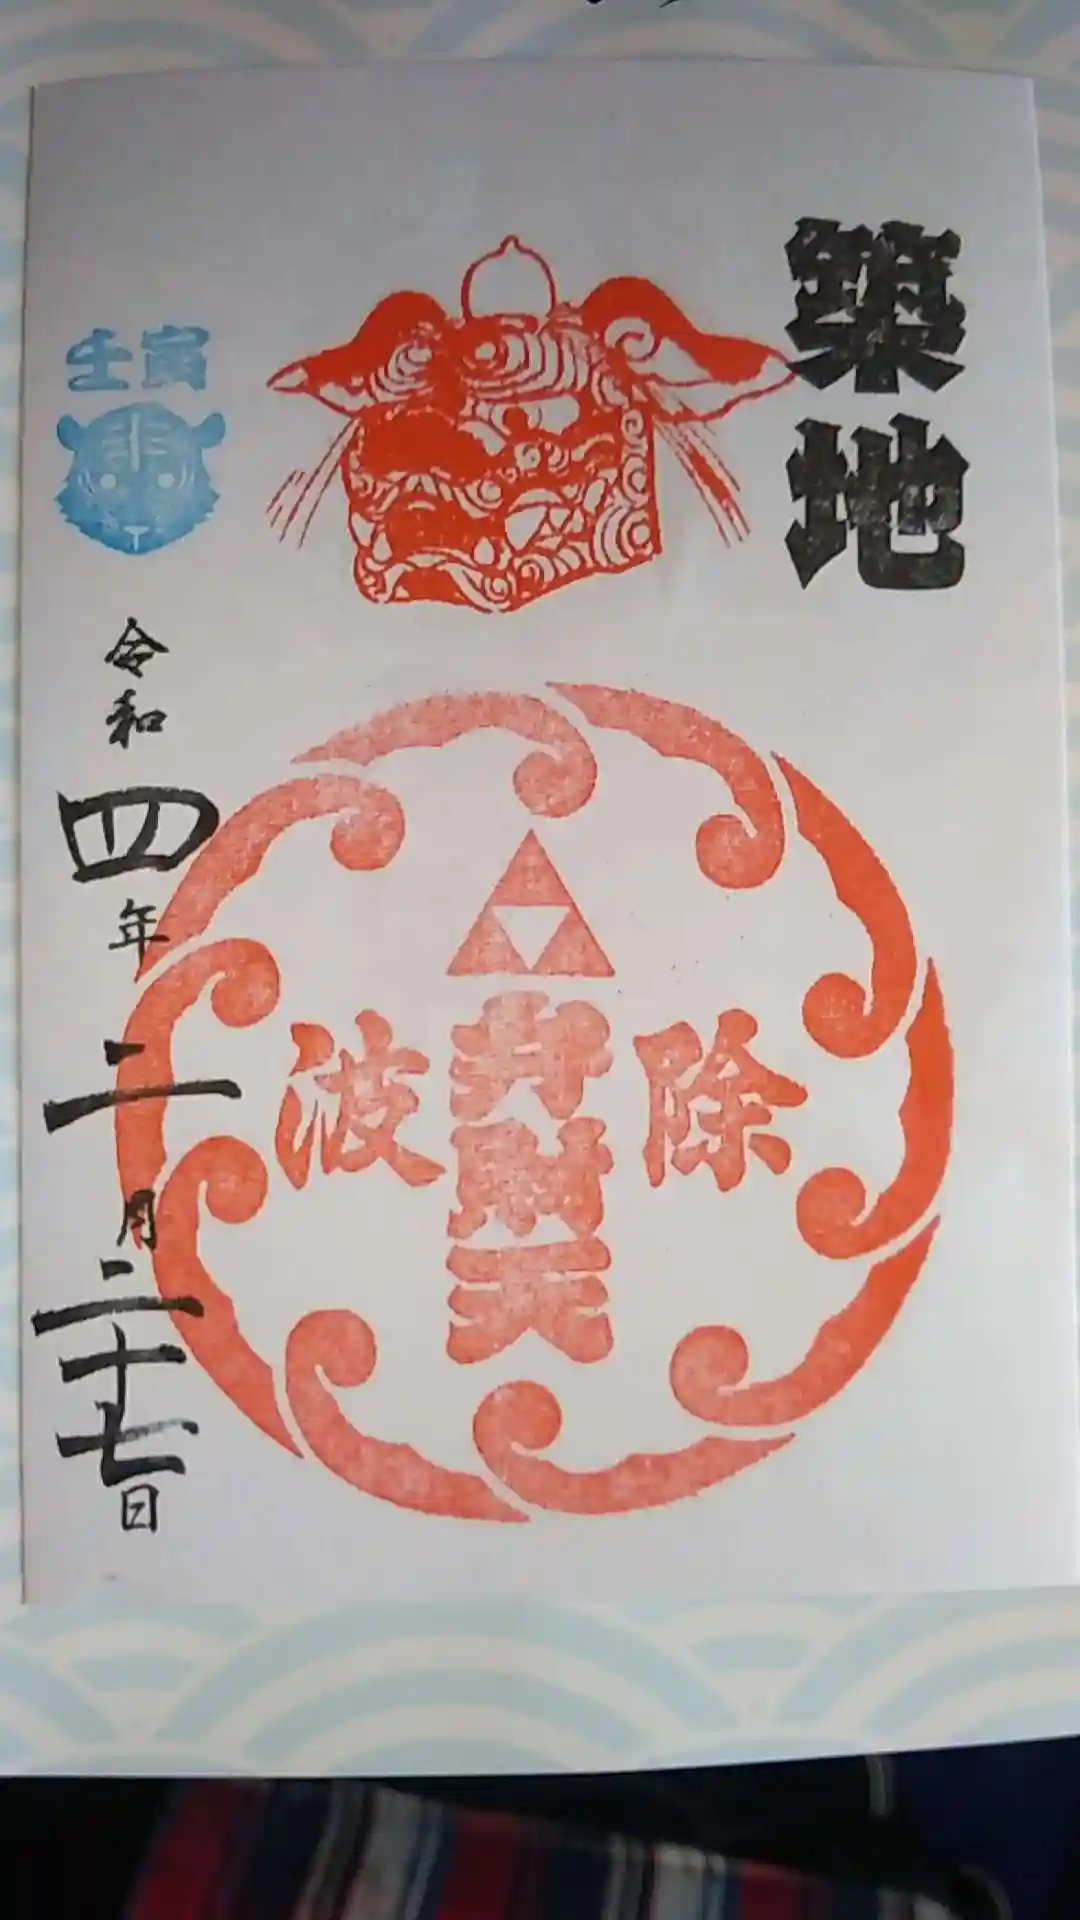 築地
除
弁財天
波
壬寅
令和四年二月二十七日